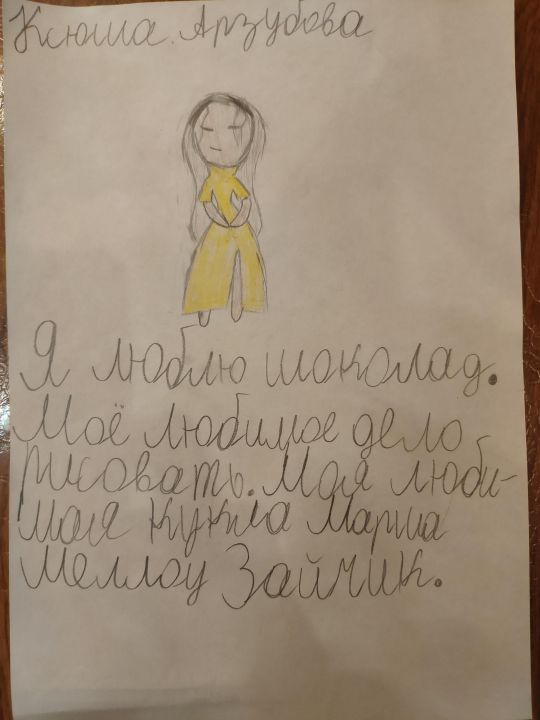 Ксюша. Арзубова
Я люблю шоколад.
Моё любимое дело
рисовать. Моя люби-
мая кукла Марша
Меллоу Зайчик.